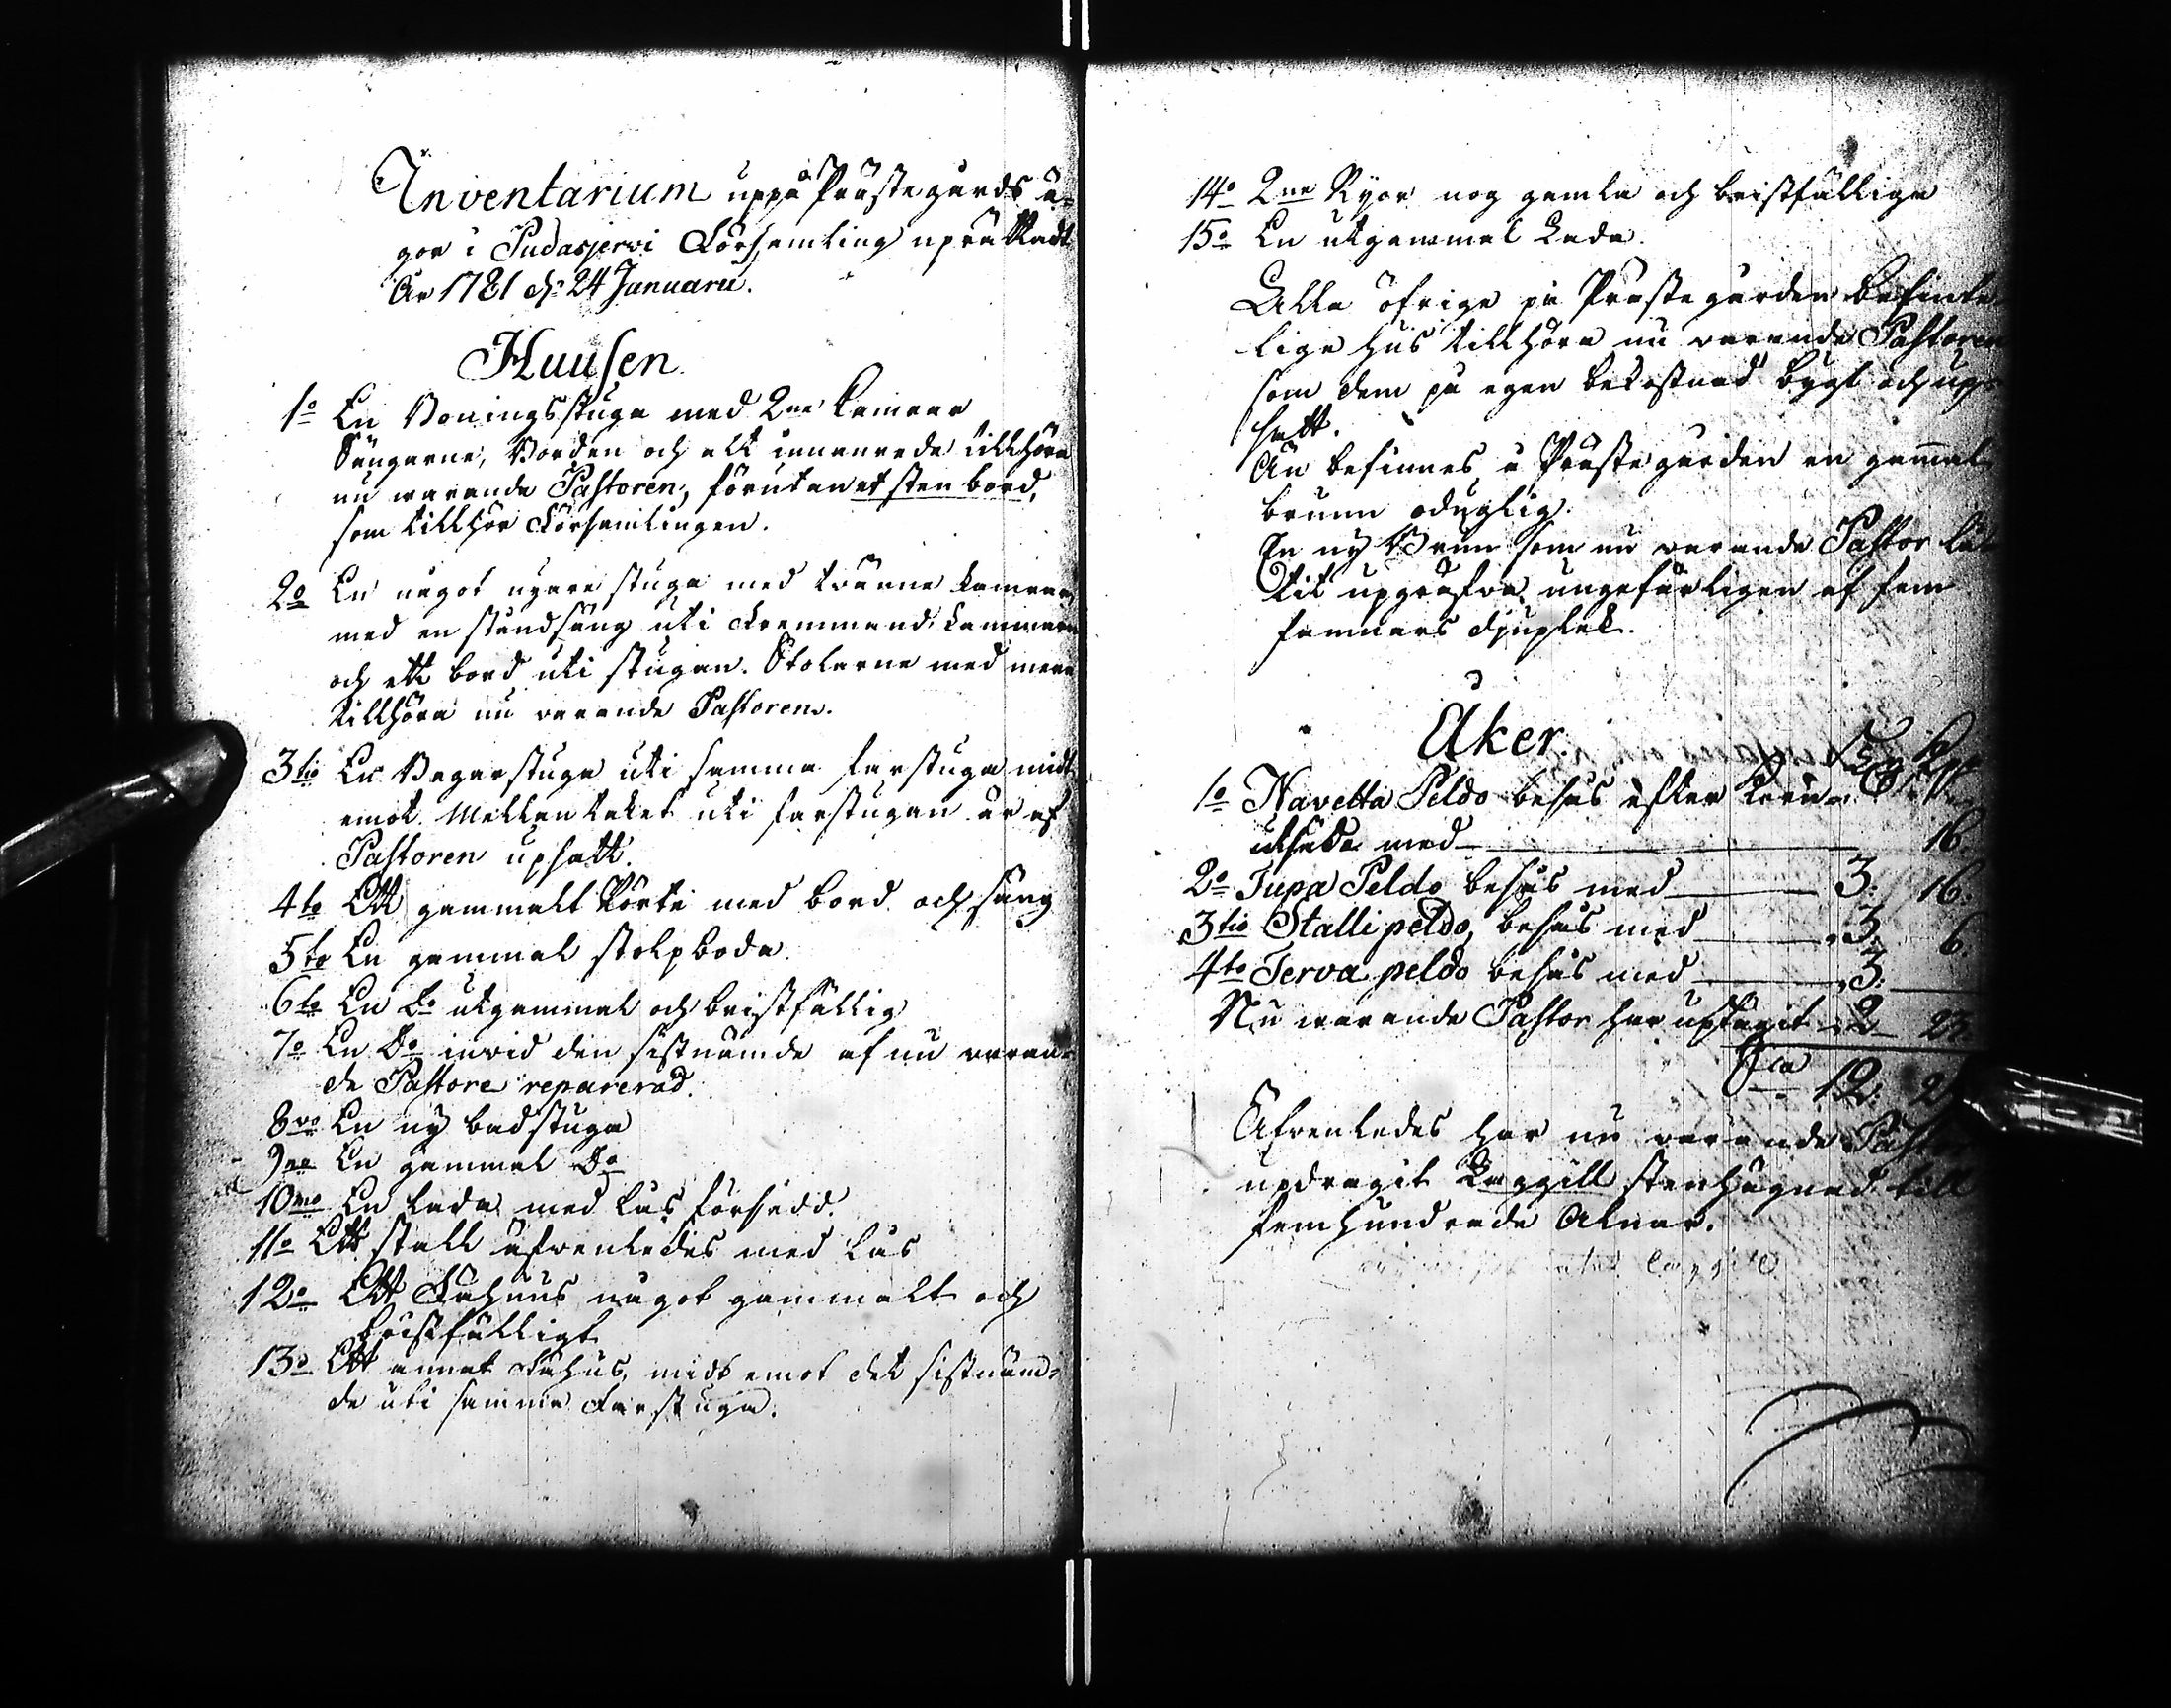 Inventarium uppå Prästegårds ä-
gor i Pudasjervi Församling uprättadt
År 1781 d: 24 Januarii.
Huusen
1o En Boningsstuga med 2ne kamrar
Sängarne, Borden och alt innanrede tillhöra
nu warande Pastoren, förutan et sten bord,
som tillhör Församlingen.
2o En något nyare stuga med tvänne kamrar,
med en ståndsäng uti fremmand kammarn
och ett bord uti stugan. Stolarne med mera
tillhöra nu varande Pastoren.
3tio En Bagarstuga uti samma farstuga midt
emot. Mellantaket uti farstugan är af
Pastoren upsatt.
4to Ett gammalt Pörte med bord och säng
5to En gammal stolpboda.
6to En Do utgammal och bristfällig
7o En Do invid den sistnämde af nu varan-
de Pastore reparerad.
8vo En ny badstuga
9no En gammal Do
10mo En lada med lås försedd.
11o Ett stall äfvenledes med lås
12o Ett Fähuus något gammalt och
bristfälligt
13o Ett annat Fähus, midt emot det sistnäm-
de uti samma Farstuga.
14o 2ne Ryor nog gamla och bristfälliga
15o En utgammal Lada.
Alla öfrige på Prästegården befinte-
lige hus tillhöra nu varande Pastoren
som dem på egen bekostnad bygt och up-
satt.
Än befinnes å Prästegården en gammal
brunn oduglig.
En ny Brunn som nu varande Pastor lå-
tit upgräfva ungefärligen af fem
famnars djuplek.
Åker.
1o Navetta Peldo besås efter
utsäde med 16.
2o Tupa Peldo besås med 3. 16.
3tio Stalli peldo, besås med 3. 6.
4to Terva peldo besås med 3.
Nu warande Pastor har uptagit 2 23.
Sca 12. 2
Äfvenledes har nu varande Pastor
updragit Laggill stenhägnad till
femhundrade Alnar.